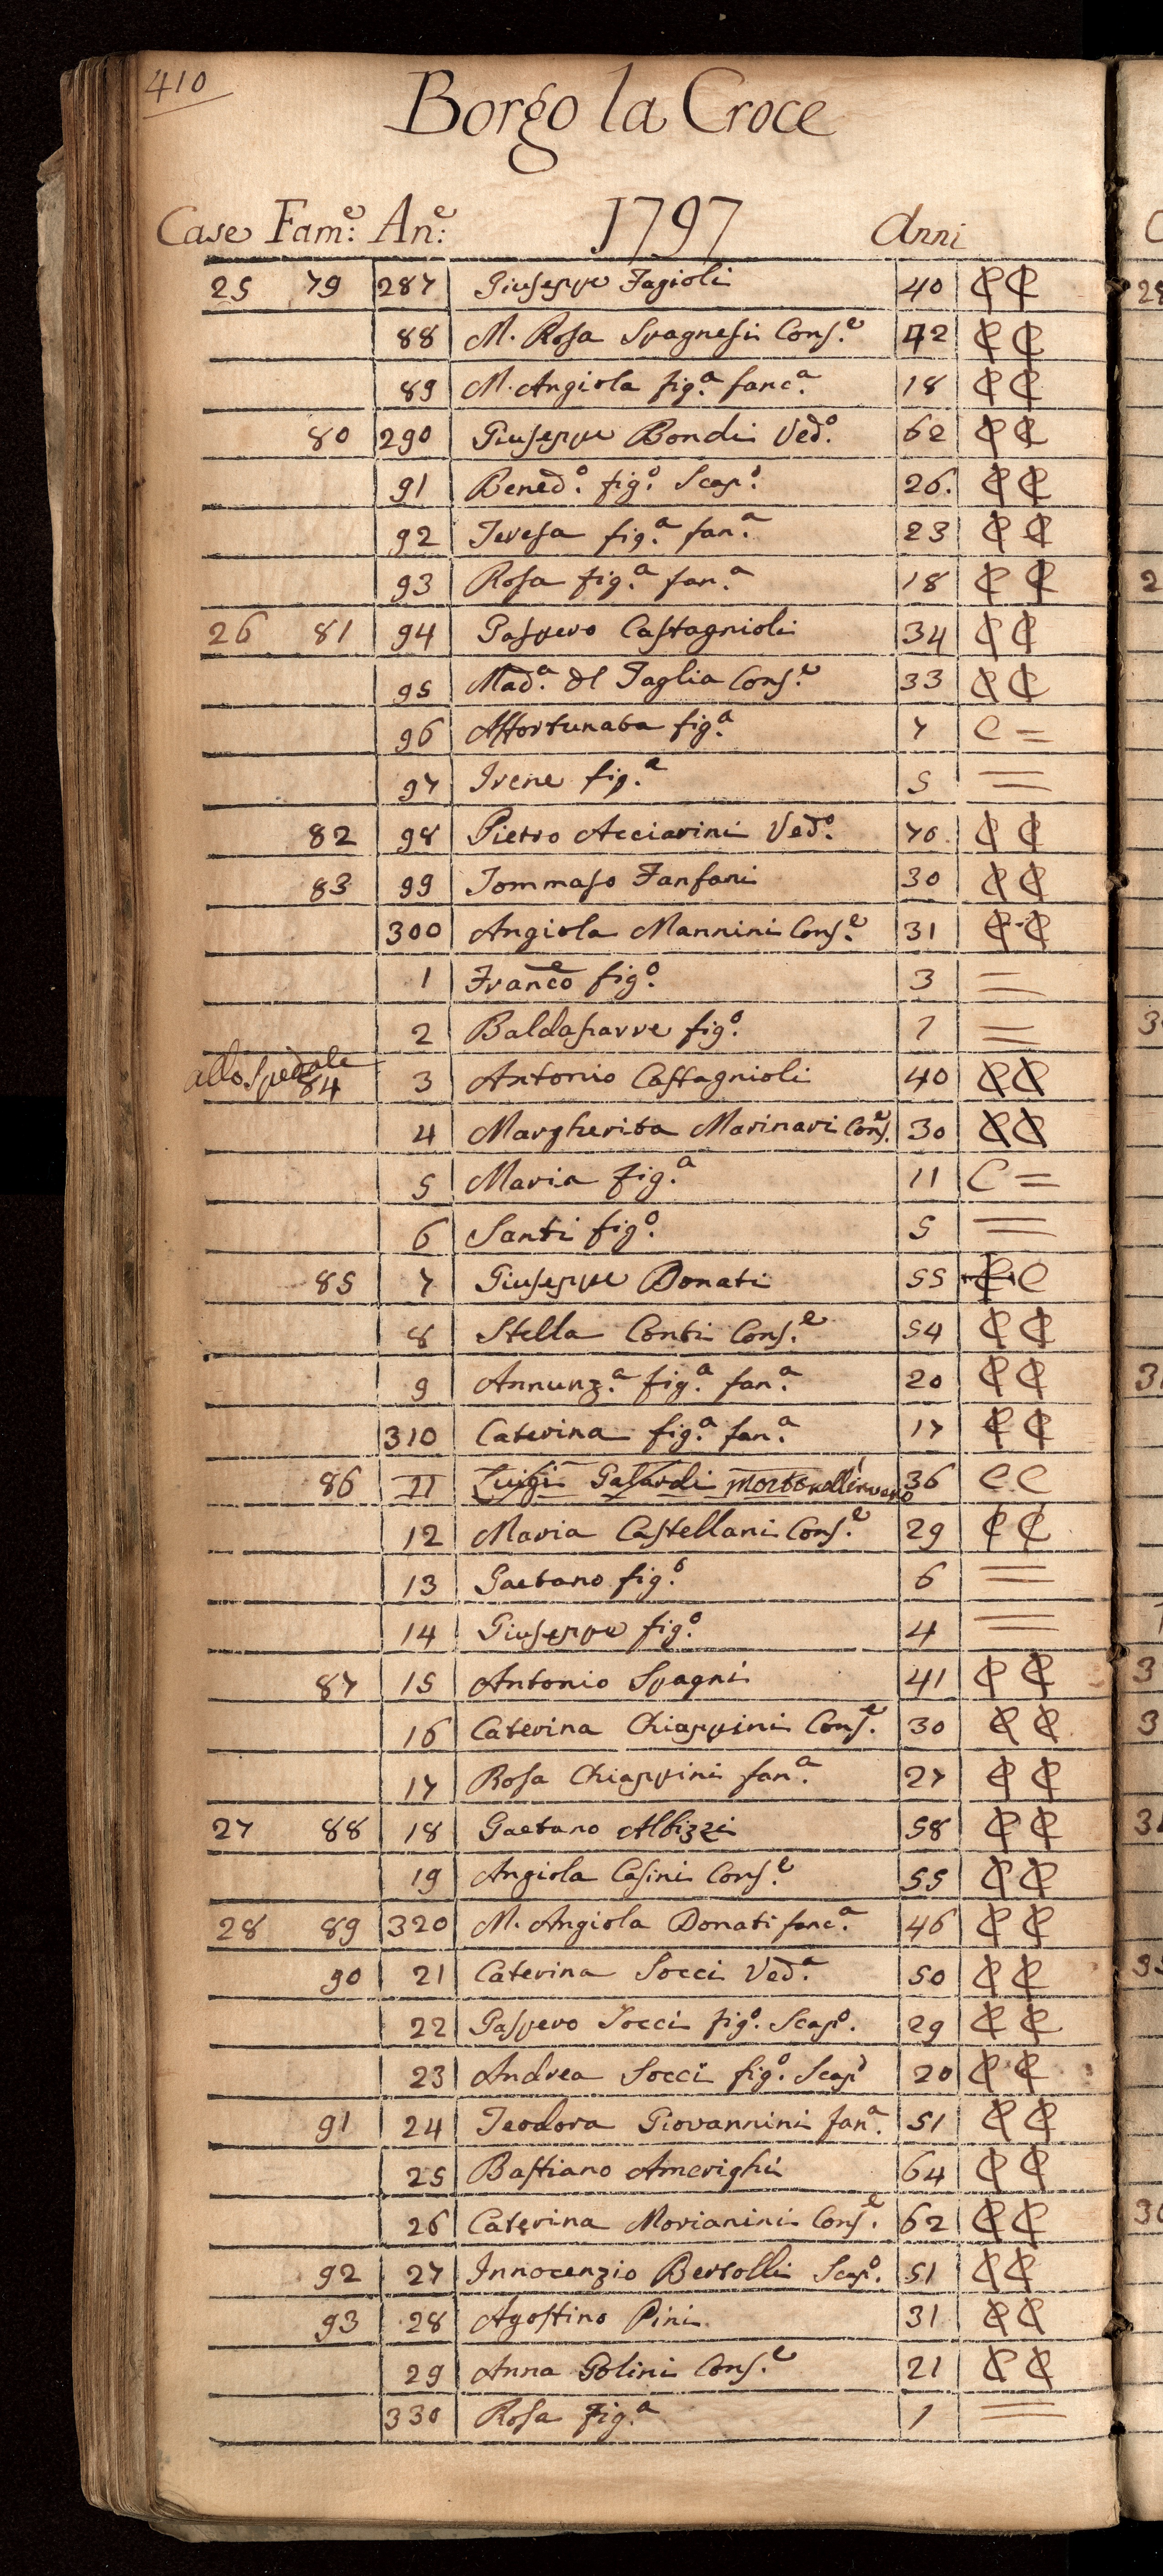 410
Borgo la Croce
Case Fam:e An:e 1797 Anni
25 79 287 Giuseppe Fagioli 40 C C
88 M. Rosa Spagnesi Cons.e 42 C C
89 M. Angiola fig.a fanc.a 18 C C
80 290 Giuseppe Bondi Ved.o 62 C C
91 Bened.o fig.o Scap.o 26. C C
92 Teresa fig.a fan.a 23 C C
93 Rosa fig.a fan.a 18 C C
26 81 94 Gaspero Castagnioli 34 C C
95 Mad.a del Taglia Cons.e 33 C C
96 Affortunata fig.a 7 C =
97 Irene fig.a 5 =
82 98 Pietro Acciarini Ved.o 70. C C
83 99 Tommaso Fanfani 30 C C
300 Angiola Mannini Cons.e 31 C C
1 Franco fig.o 3 =
2 Baldasarre fig.o 1 =
allo Spedale
84 3 Antonio Castagnioli 40 C C
4 Margherita Marinari Cons.e 30 C C
5 Maria fig.a 11 C =
6 Santi fig.o 5 =
85 7 Giuseppe Donati 55 C C
8 Stella Conti Cons.e 54 C C
9 Annunz.a fig.a fan.a 20 C C
310 Caterina fig.a fan.a 17 C C
86 11 Luigi morto 36 C C
12 Maria Castellani Cons.e 29 C C
13 Gaetano fig.o 6 =
14 Giuseppe fig.o 4 =
87 15 Antonio Spagni 41 C C
16 Caterina Chiappini Cons.e 30 C C
17 Rosa Chiappini fan.a 27 C C
27 88 18 Gaetano Albizzi 58 C C
19 Angiola Casini Cons.e 55 C C
28 89 320 M. Angiola Donati fanc.a 46 C C
90 21 Caterina Socci Ved.a 50 C C
22 Gaspero Socci fig.o Scap.o 29 C C
23 Andrea Socci fig.o Scap.o 20 C C
91 24 Teodora Giovannini fan.a 51 C C
25 Bastiano Amerighi 64 C C
26 Caterina Morianini Cons.e 62 C C
92 27 Innocenzio Bertolli Scap.o 51 C C
93 28 Agostino Pini 31 C C
29 Anna Golini Cons.e 21 C C
330 Rosa fig.a 1 =